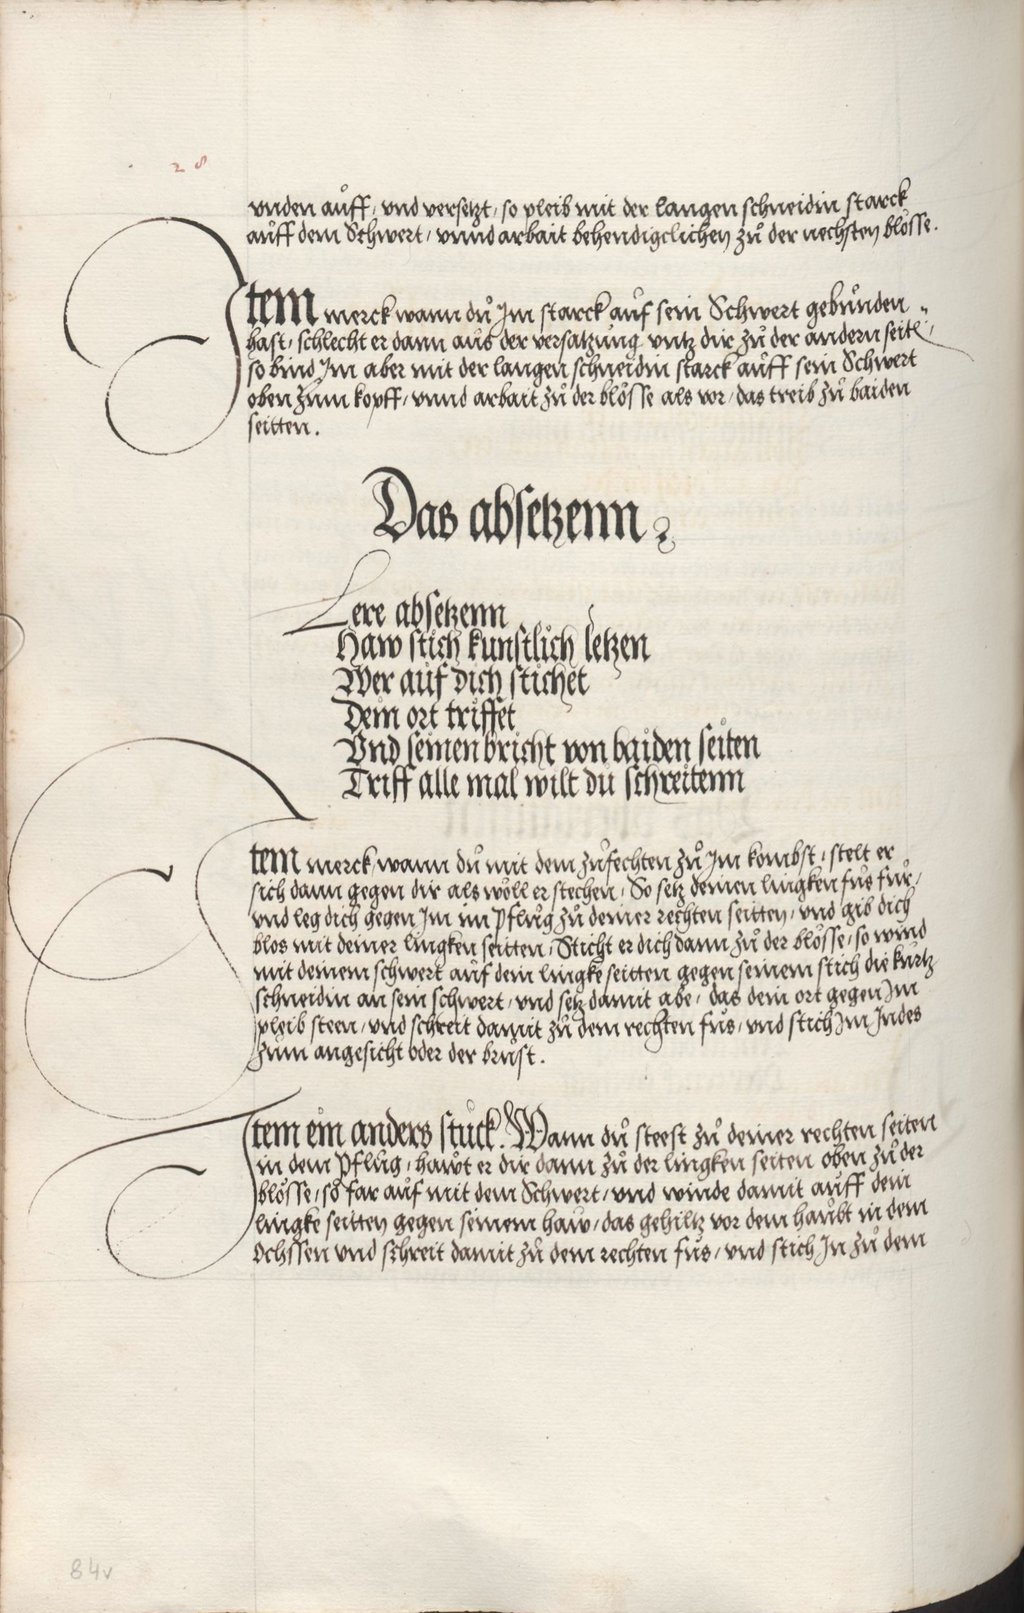 28
vnden aůff, vnd versetzt, so pleib mit der langen schneidin starck
aůff dem Schwert, vnnd arbait behendigclichen zů der nechsten blösse.
Item merck wann dů Im starck auf sein Schwert gebůnden
hast, schlecht er dann aus der versatzůng vntz dir zů der andern seite,
so bind Im aber mit der langen schneidin starck aůff sein Schwert
oben zům kopff, vnnd arbait zů der blösse als vor, das treib zů baiden
seitten.
Das absetzenn
Lere absetzenn
Haw stich kunstlich letzen
Wer auf dich stichet
Dein ort triffet
Vnd seinen bricht von baiden seiten
Triff alle mal wilt du schreitenn
Item merck, wann dů mit dem zůfechten zů Im kombst, stelt er
sich dann gegen dir als wöll er stechen, So setz deinen lingken fůs fůr,
vnd leg dich gegen Im im pflůg zů deiner rechten seitten, vnd gib dich
blos mit deiner lingken seitten, Sticht er dich dann zů der blösse, so wind
mit deinem schwert auf dein lingke seitten gegen seinem stich die kůrtz
schneidin an sein schwert, vnd setz damit abe, das dein ort gegen Im
pleib steen, vnd schreit damit zů dem rechten fůs, vnd stich Im Indes
zům angesicht oder der brůst.
Item ein anders stuck. Wann dů steest zů deiner rechten seiten
in dem pflůg, hawt er dir dann zů der lingken seiten oben zů der
blösse, so far auf mit dem Schwert, vnd winde damit aůff dein
lingke seitten gegen seinem haw, das gehiltz vor dem haůbt in dem
Ochssen vnd schreit damit zů dem rechten fůs, vnd stich In zů dem
84v